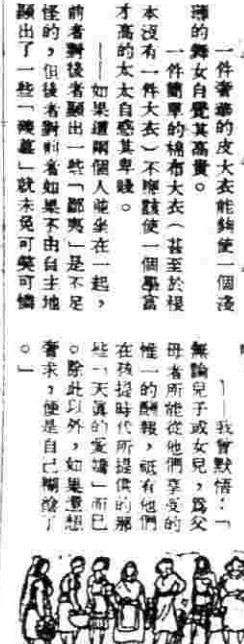 一件奢華的皮大衣能夠使一個淺
薄的舞女自覺其高貴。
一件簡單的棉布大衣(甚至於根
本沒有一件大衣)不應該使一個學富
才高的太太自慙其卑賤。
——如果這兩個人並坐在一起,
前者對後者顯出一些「鄙夷」是不足
怪的,但後者對前者如果不由自主地
顯出了一些「羨慕」就未免可笑可憐
——我曾默悟:「
無論兒子或女兒,爲父
母者所能從他們享受的
惟一的酬報,祇有他們
在孩提時代所提供的那
些「天真的愛嬌」而已
。除此以外,如果還想
奢求,便是自己糊塗了
。」